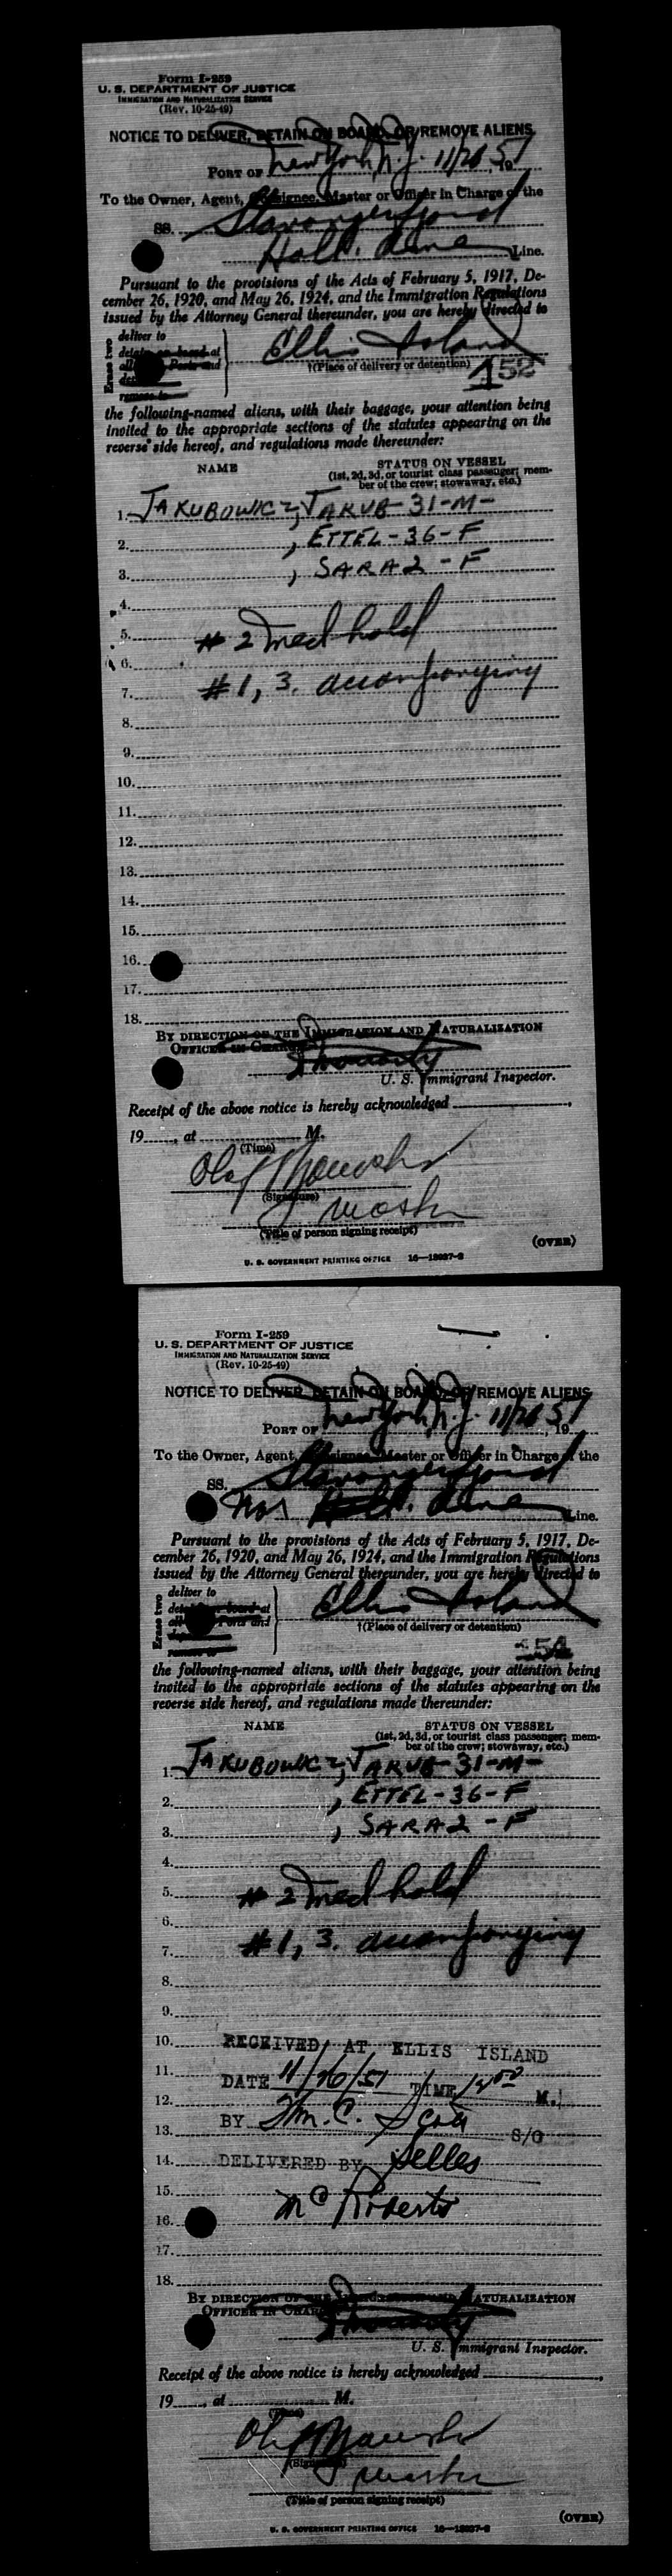 Form I-259
U. S. DEPARTMENT OF JUSTICE
IMMIGRATION AND NATURALIZATION SERVICE
(Rev. 10-25-49)
NOTICE TO DELIVER, DETAIN ON BOARD, OR REMOVE ALIENS
PORT OF New York, N.Y. 11/26 51, 19
To the Owner, Agent, Consignee, Master or Officer in Charge of the
SS. Stavangerfjord
Line.
Pursuant to the provisions of the Acts of February 5, 1917, De-
cember 26, 1920, and May 26, 1924, and the Immigration Regulations
issued by the Attorney General thereunder, you are hereby directed to
Erase two
deliver to
detain on board at
Ports and
remove to
Ellis Island
†(Place of delivery or detention)
152
the following-named aliens, with their baggage, your attention being
invited to the appropriate sections of the statutes appearing on the
reverse side hereof, and regulations made thereunder:
NAME STATUS ON VESSEL
(1st, 2d, 3d, or tourist class passenger; mem-
ber of the crew; stowaway, etc.)
1. JAKUBOWICZ, JAKUB-31-M-
2. , ETTEL-36-F
3. , SARA 2 -F
4.
5. # 2 med hold
6.
7. #1, 3. accompanying
8.
9.
10.
11.
12.
13.
14.
15.
16.
17.
18.
BY DIRECTION OF THE IMMIGRATION AND NATURALIZATION
OFFICER IN CHARGE
U. S. Immigrant Inspector.
Receipt of the above notice is hereby acknowledged
19, at M.
(Time)
Olaf
(Signature)
Master
(Title of person signing receipt)
(OVER)
U. S. GOVERNMENT PRINTING OFFICE 16—18037-2
Form I-259
U. S. DEPARTMENT OF JUSTICE
IMMIGRATION AND NATURALIZATION SERVICE
(Rev. 10-25-49)
NOTICE TO DELIVER, DETAIN ON BOARD, OR REMOVE ALIENS
PORT OF New York, N.Y. 11/26 51, 19
To the Owner, Agent, Consignee, Master or Officer in Charge of the
SS. Stavangerfjord
Nor Line.
Pursuant to the provisions of the Acts of February 5, 1917, De-
cember 26, 1920, and May 26, 1924, and the Immigration Regulations
issued by the Attorney General thereunder, you are hereby directed to
Erase two
deliver to
detain on board at
Ports and
remove to
Ellis Island
†(Place of delivery or detention)
the following-named aliens, with their baggage, your attention being
invited to the appropriate sections of the statutes appearing on the
reverse side hereof, and regulations made thereunder:
NAME STATUS ON VESSEL
(1st, 2d, 3d, or tourist class passenger; mem-
ber of the crew; stowaway, etc.)
1. JAKUBOWICZ, JAKUB-31-M-
2. , ETTEL-36-F
3. , SARA 2 -F
4.
5. # 2 med hold
6.
7. #1, 3. accompanying
8.
9.
10. RECEIVED AT ELLIS ISLAND
11. DATE 11/26/51 TIME M.
12.
13. BY Wm. C. Scott S/O
14. DELIVERED BY Selles
15.
16. Mc Roberts
17.
18.
BY DIRECTION OF THE IMMIGRATION AND NATURALIZATION
OFFICER IN CHARGE
U. S. Immigrant Inspector.
Receipt of the above notice is hereby acknowledged
19, at M.
(Time)
Olaf
(Signature)
Master
(Title of person signing receipt)
(OVER)
U. S. GOVERNMENT PRINTING OFFICE 16—18037-2